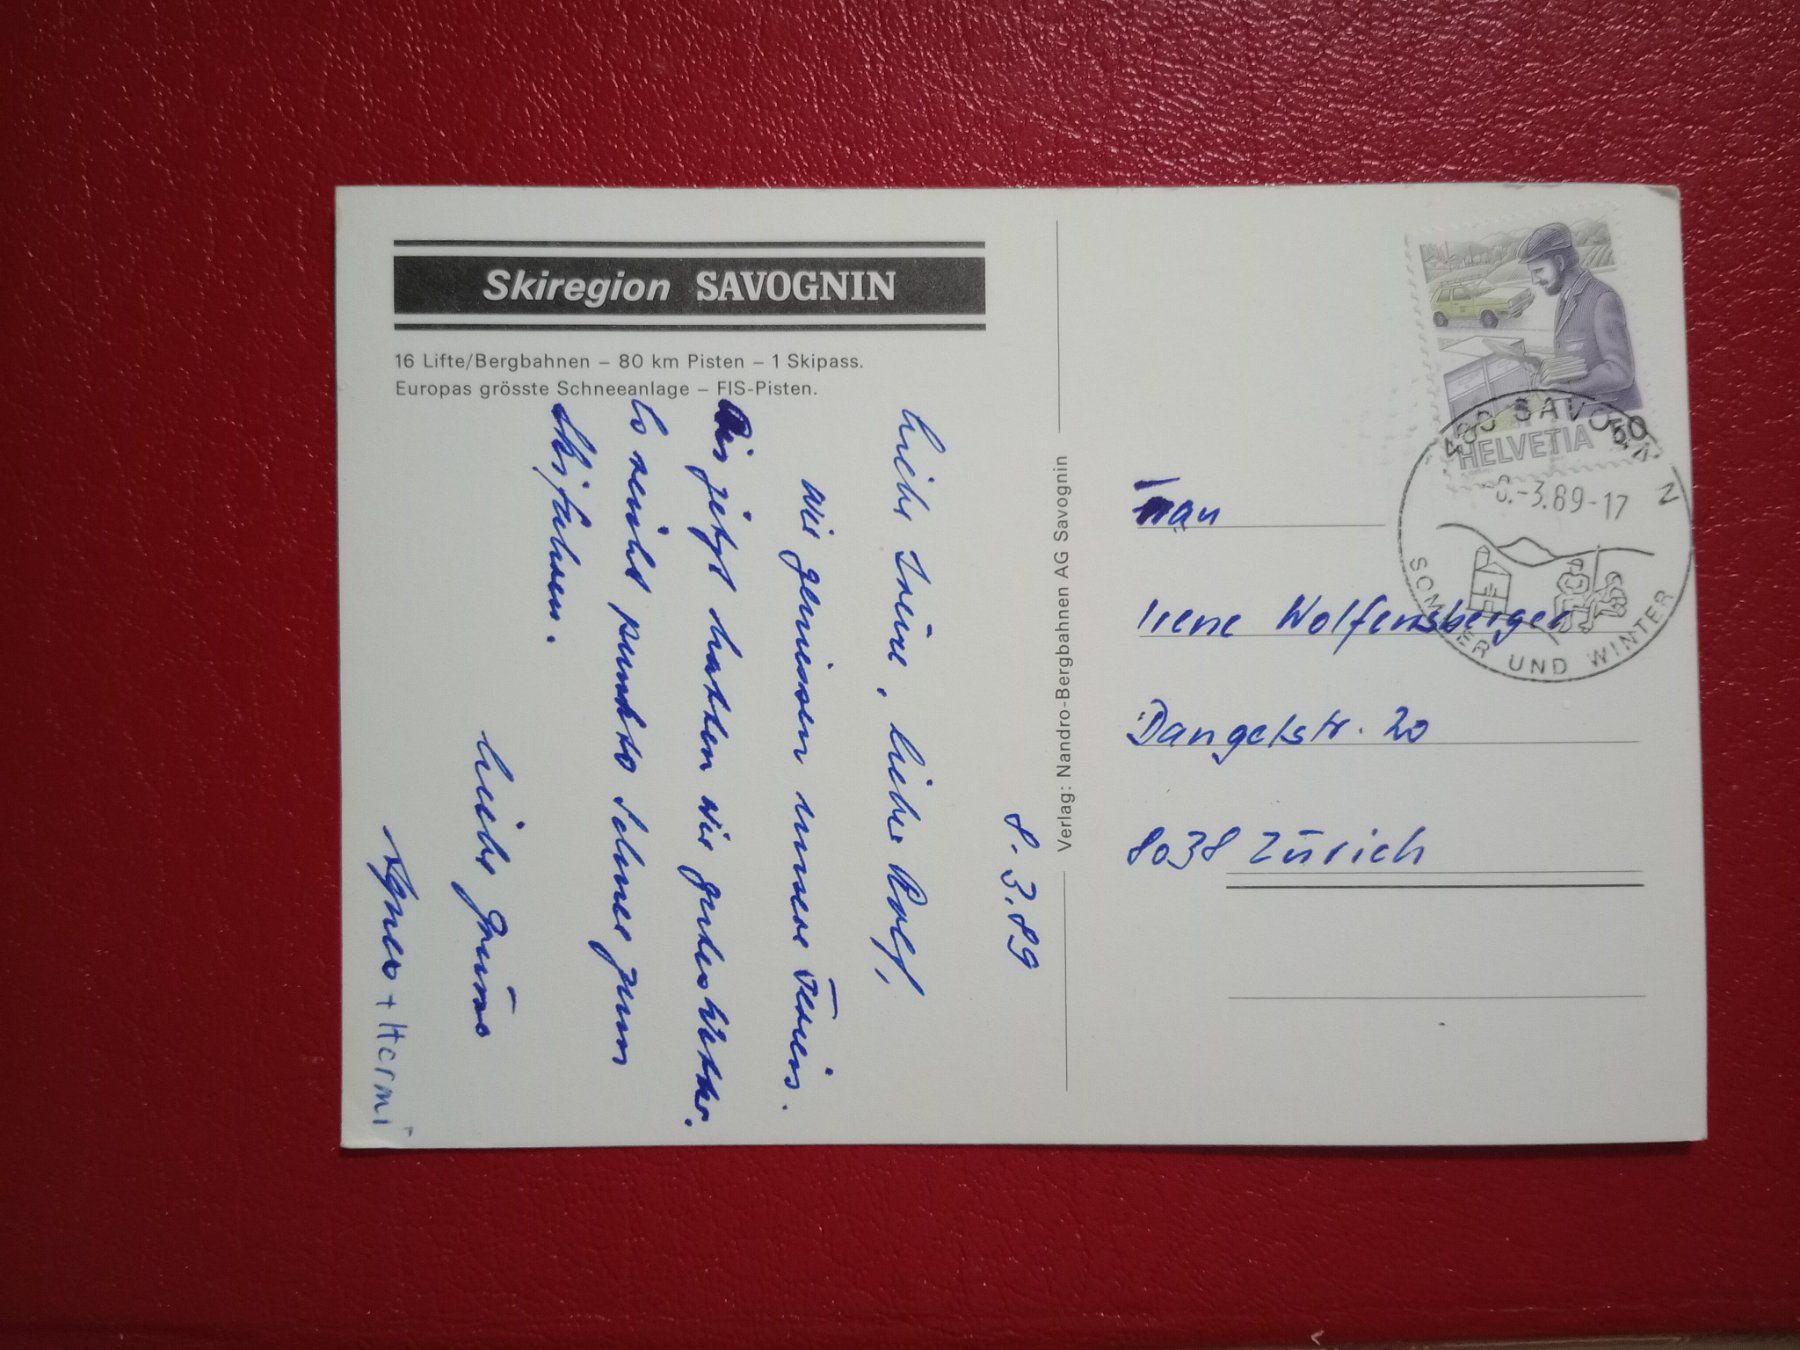 Skiregion SAVOGNIN
16 Lifte/Bergbahnen – 80 km Pisten – 1 Skipass.
Europas grösste Schneeanlage – FIS-Pisten.
8.3.89
Liebe Irène, lieber Rolf,
wir geniessen unsere Ferien.
Bis jetzt hatten wir gutes Wetter.
Es reicht punkto Schnee zum
Skifahren.
Liebe Grüsse
Agnes + Hermi
Verlag: Nandro-Bergbahnen AG Savognin
HELVETIA 50
SAVOGNIN
-3.89-17
SOMMER UND WINTER
Frau
Irene Wolfensberger
Dangelstr. 20
8038 Zürich